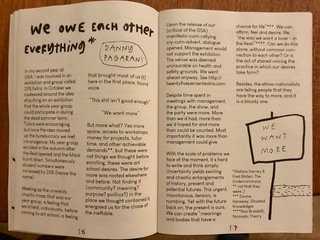 We owe Each other
Everything*
DANNY
PAGARANI
In my second year at
GSA, I was involved in an
exhibition and group called
25% Extra. In October we
coalesced around the idea
of putting on an exhibition
that the whole year group
could participate in during
the dead summer term.
Tutors were encouraging.
But once the idea moved
up the bureaucracy we met
intransigence. My year group
arrived in the autumn after
the Reid opened and the Mack
burnt down. Simultaneously
student numbers were
increased by 25% (hence the
name).
Meeting as the unwieldy
chaotic mass that was our
year group, a feeling that
we all had, individually, before
coming to art school, a feeling
that brought most of us (?)
here in the first place, found
voice.
"This shit isn't good enough"
"We want more"
But more what? Yes more
space, access to workshops,
money for projects, tutor
time, and other achievable
demands**, but these were
not things we thought before
enrolling, these were art
school desires. The desire for
more was rooted elsewhere
and before. Not finding it
(community? meaning?
purpose? politics?) in the
once we thought contained it,
energised us for the choice of
the ineffable.
16
Upon the release of our
(critical of the GSA)
manifesto-cum-rallying
cry-cum-advert, dialogue
opened. Management would
not support the exhibition.
The venue was deemed
unsuitable on health and
safety grounds. We went
ahead anyway. See http://
twentyfivepercentextra.com
Despite time spent in
meetings with management,
the group, the show, and
the party were more. More
than we'd had, more than
we'd hoped for and more
than could be counted. Most
importantly it was more than
management could give.
With the scale of problems we
face at the moment, it's hard
to write and think simply.
Uncertainty yields swirling
and chaotic entanglements
of history, present and
potential futures. This urgent
tremendous, tension, is
humbling. Yet with the future
back on, the present is ours.
We can create "meanings
and bodies that have a
chance for life"***. We can
affirm, feel and desire, life.
'The way we want a lover - in
the flesh'****. Can we do this
alone, without common con-
nection to each other? Or
is the act of shared voicing the
practice in which our desires
take form?
Besides, the ethno-nationalists
are telling people that they
have the way to more, and it
is a bloody one.
WE
WANT
MORE
*Stefano Harney &
Fred Moten, The
Undercommons
** not that they
were :(
*** Donna
Haraway, Situated
Knowledges
****Rosi Braidotti,
Nomadic Theory
17